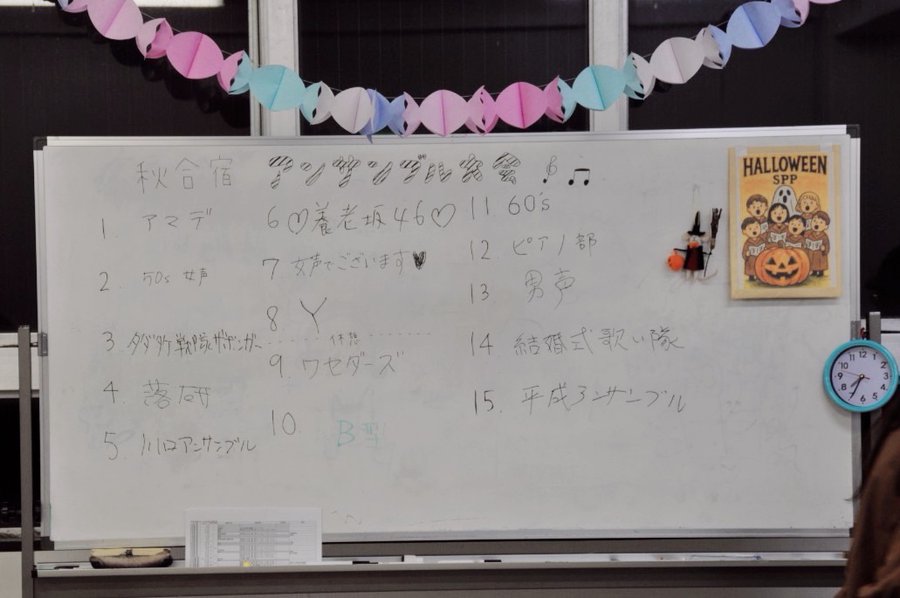 秋合宿 アンサンブル大会
1 アマデ
2. 50s 女声
3
4. 落研
5 川口アンサンブル
6♡養老坂46♡
7. 女声でございます♥
8 Y
休憩
9. ワセダーズ
10. B型
11 60s
12. ピアノ部
13 男声
14 結婚式歌い隊
15. 平成3ンサンブル
HALLOWEEN
SPP